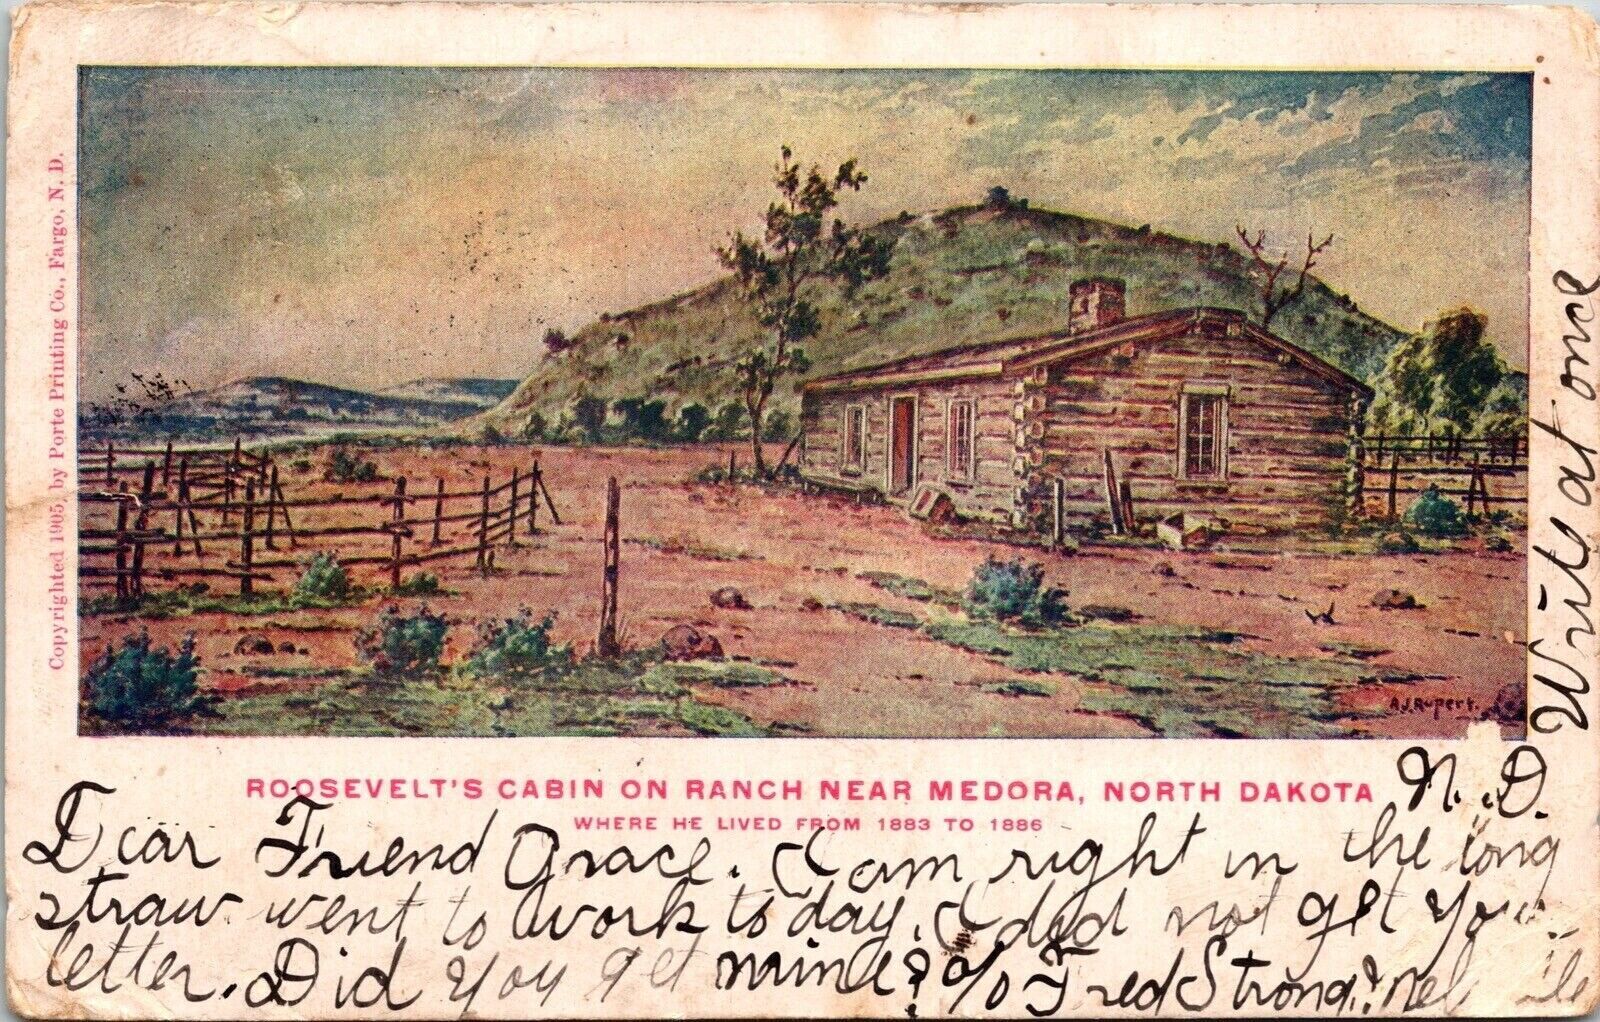 Copyrighted 1905, by Porte Printing Co., Fargo, N. D.
A.J. Rupert.
ROOSEVELT'S CABIN ON RANCH NEAR MEDORA, NORTH DAKOTA
WHERE HE LIVED FROM 1883 TO 1886
Dear Friend Grace. I am right in the long
straw went to work to day, I did not get your
letter. Did you get mine? % Fred Strong.
N.D.
Write at once